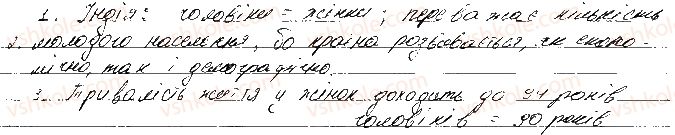 1. Індія: чоловіки = жінки; переважає кількість
2. молодого населення, бо країна розвивається, як еконо-
мічно, так і демографічно.
3. Тривалість життя у жінок доходить до 94 років
чоловіків = 90 років